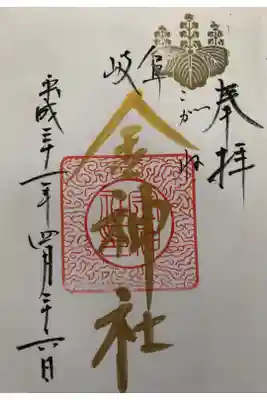 奉拝
岐阜
こがね
金神社
平成三十一年四月二十六日